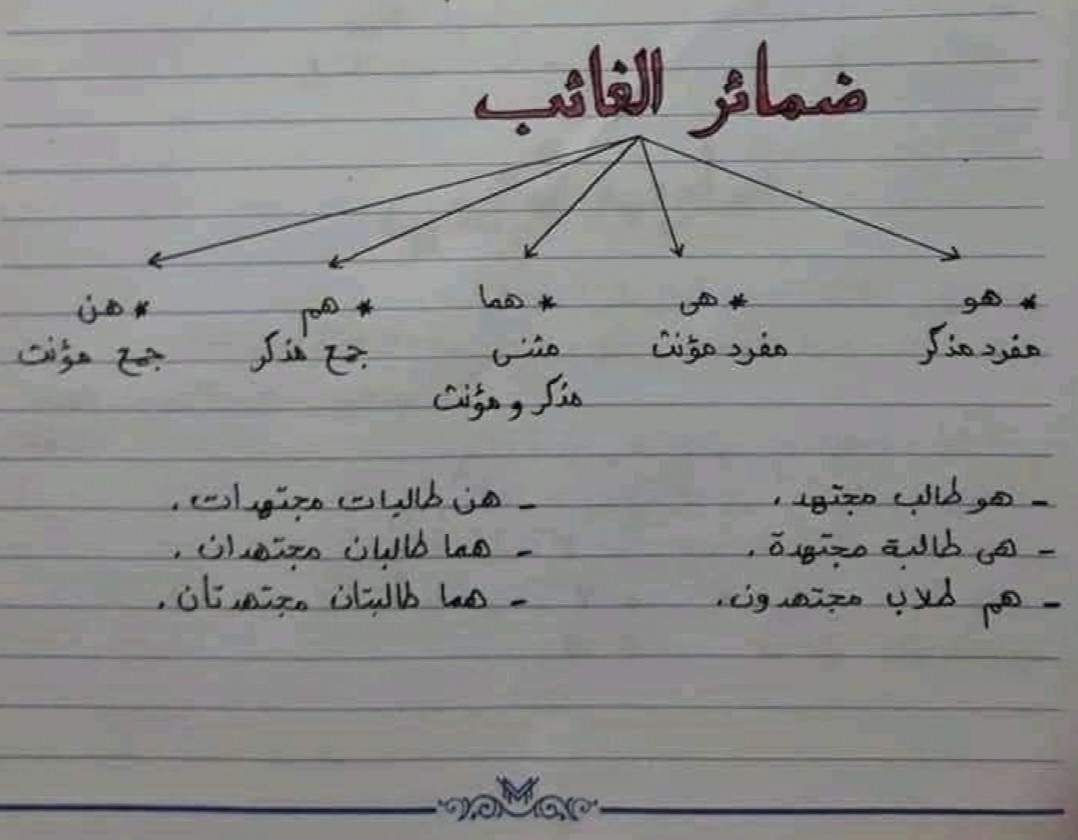 ضمائر الغائب
* هو * هى * هما * هم * هن
مفرد مذكر مفرد مؤنث مثنى جمع مذكر جمع مؤنث
مذكر و مؤنث
- هو طالب مجتهد. - هن طالبات مجتهدات.
- هى طالبة مجتهدة. - هما طالبان مجتهدان.
- هم طلاب مجتهدون. - هما طالبتان مجتهدتان.